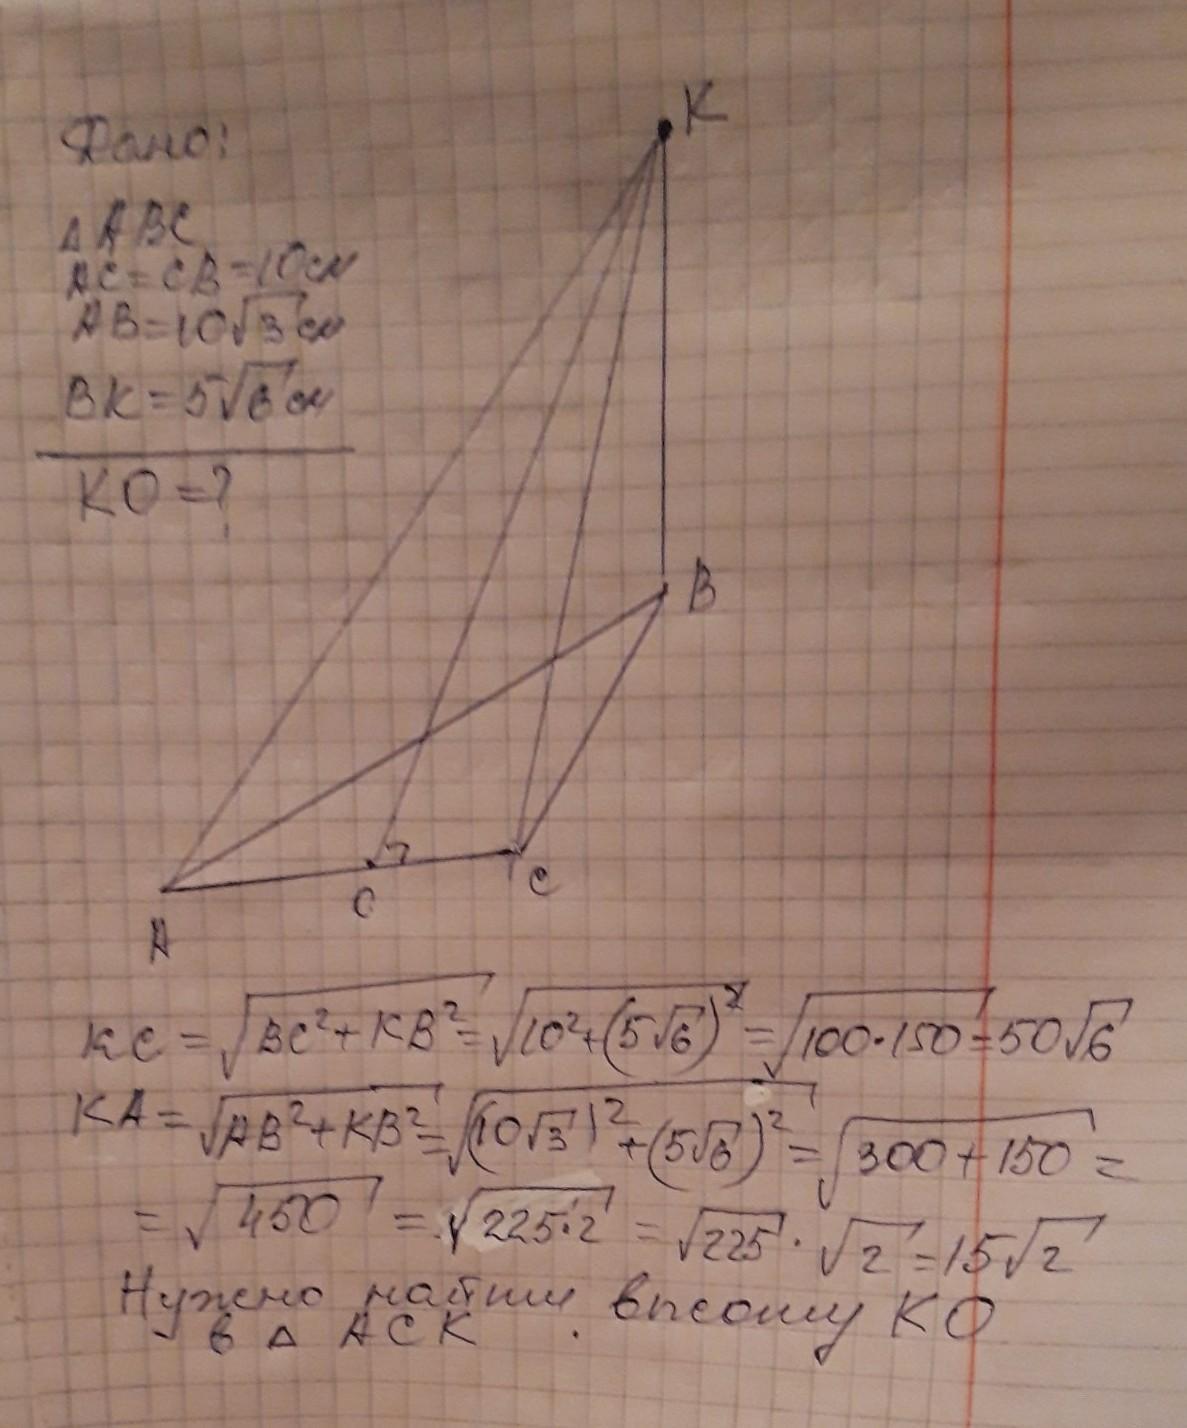 Дано:
△ ABC
AC = CB = 10 см
AB = 10√3 см
BK = 5√6 см
KO = ?
K
B
O
C
A
KC = √(BC² + KB²) = √(10² + (5√6)²) = √(100·150) = 50√6
KA = √(AB² + KB²) = √((10√3)² + (5√6)²) = √(300 + 150) =
= √450 = √(225·2) = √225 · √2 = 15√2
Нужно найти высоту KO
в △ ACK .